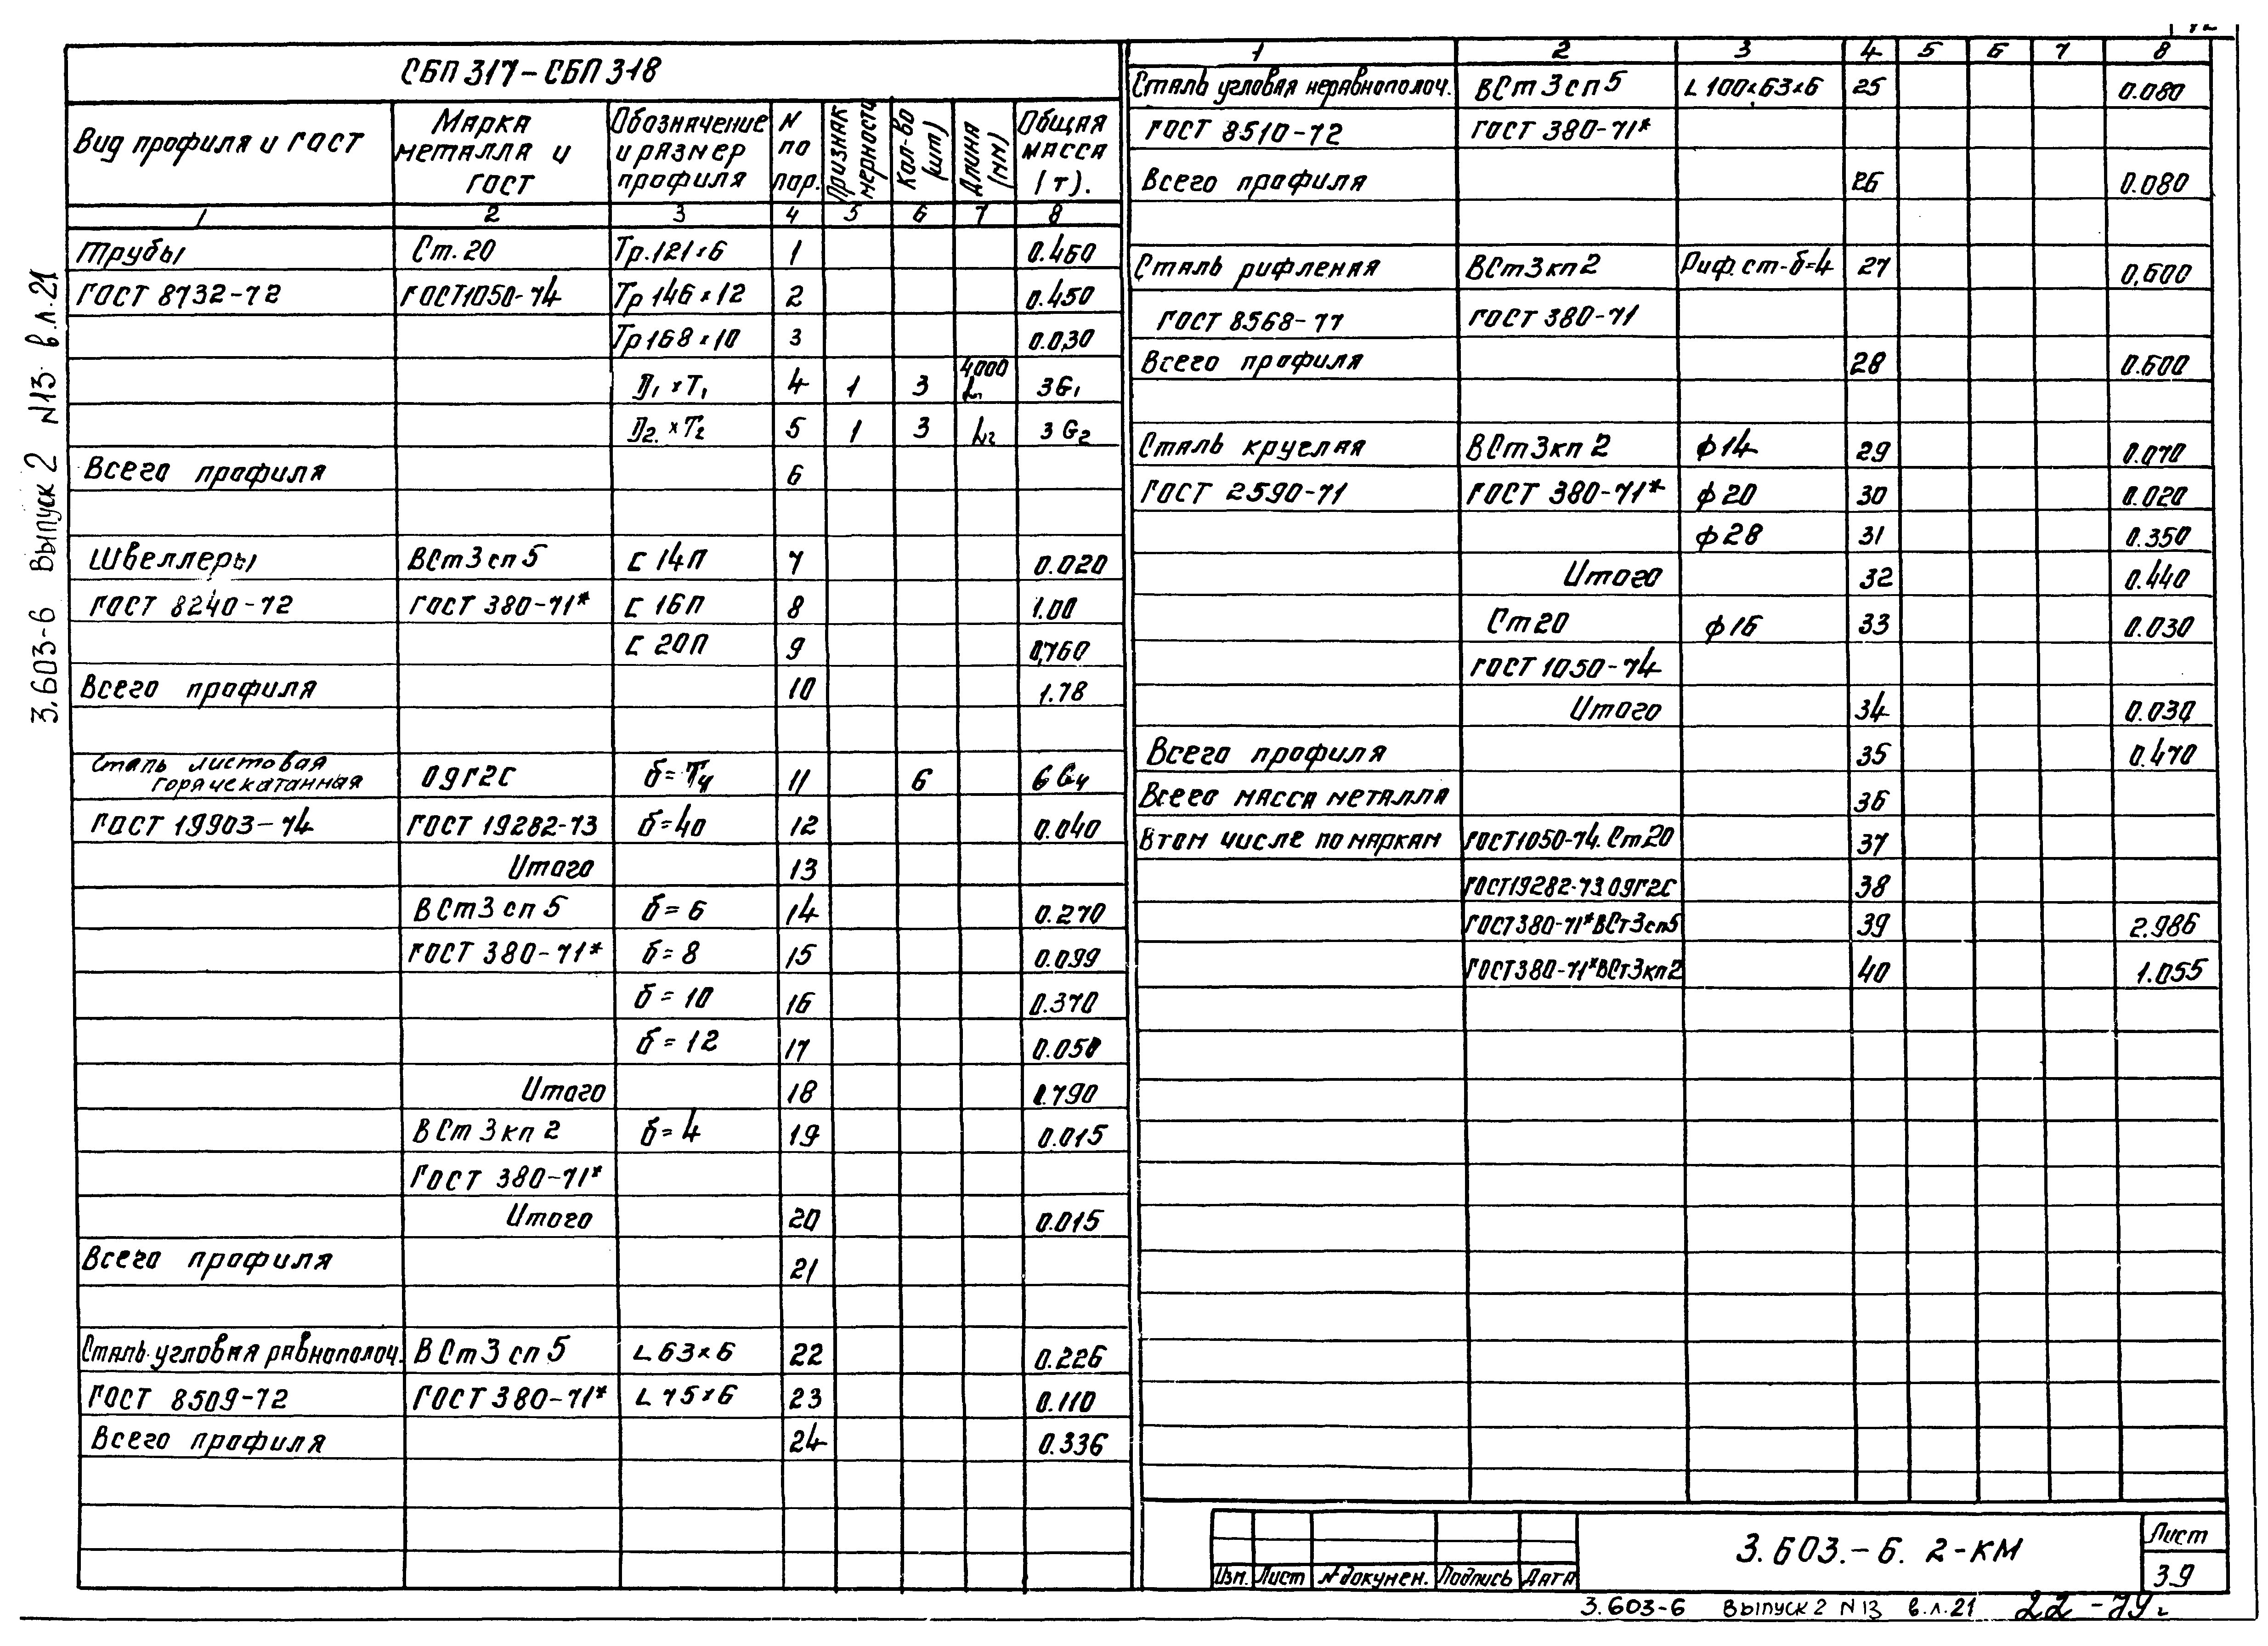 СБП 317-СБП 318
Вид профиля и ГОСТ Марка металла и ГОСТ Обозначение и размер профиля N по пор. Признак мерности Кол-во (шт) Длина (мм) Общая масса (т).
1 2 3 4 5 6 7 8
Трубы Ст. 20 Тр. 121×6 1 0.460
ГОСТ 8732-72 ГОСТ 1050-74 Тр 146×12 2 0.450
Тр 168×10 3 0.030
D1 × T1 4 1 3 4000 L1 3G1
D2 × T2 5 1 3 L2 3G2
Всего профиля 6
Швеллеры ВСт 3 сп 5 С 14П 7 0.020
ГОСТ 8240-72 ГОСТ 380-71* С 16П 8 1.00
С 20П 9 0,760
Всего профиля 10 1.78
Сталь листовая
горячекатанная 09Г2С б= T4 11 6 6 G4
ГОСТ 19903-74 ГОСТ 19282-73 б=40 12 0.040
Итого 13
ВСт3 сп 5 б= 6 14 0.270
ГОСТ 380-71* б= 8 15 0.099
б= 10 16 0.370
б= 12 17 0.050
Итого 18 0.790
ВСт 3 кп 2 б= 4 19 0.015
ГОСТ 380-71*
Итого 20 0.015
Всего профиля 21
Сталь угловая равнополоч. ВСт3 сп 5 L 63×6 22 0.226
ГОСТ 8509-72 ГОСТ 380-71* L 75×6 23 0.110
Всего профиля 24 0.336
1 2 3 4 5 6 7 8
Сталь угловая неравнополоч. ВСт 3 сп 5 L 100×63×6 25 0.080
ГОСТ 8510-72 ГОСТ 380-71*
Всего профиля 26 0.080
Сталь рифленая ВСт3кп2 Риф.ст-б=4 27 0,600
ГОСТ 8568-77 ГОСТ 380-71
Всего профиля 28 0.600
Сталь круглая ВСт3кп 2 ф14 29 0.070
ГОСТ 2590-71 ГОСТ 380-71* ф20 30 0.020
ф28 31 0.350
Итого 32 0.440
Ст20 ф16 33 0.030
ГОСТ 1050-74
Итого 34 0.030
Всего профиля 35 0.470
Всего масса металла 36
В том числе по маркам ГОСТ1050-74. Ст20 37
ГОСТ19282-73 09Г2С 38
ГОСТ380-71* ВСт3сп5 39 2.986
ГОСТ380-71* ВСт3кп2 40 1.055
Изм. Лист № докумен. Подпись Дата
3.603.-6. 2-КМ
Лист
39
3.603-6 Выпуск 2 N13 в.л.21 22-79г
3.603-6 Выпуск 2 N13 в.л.21